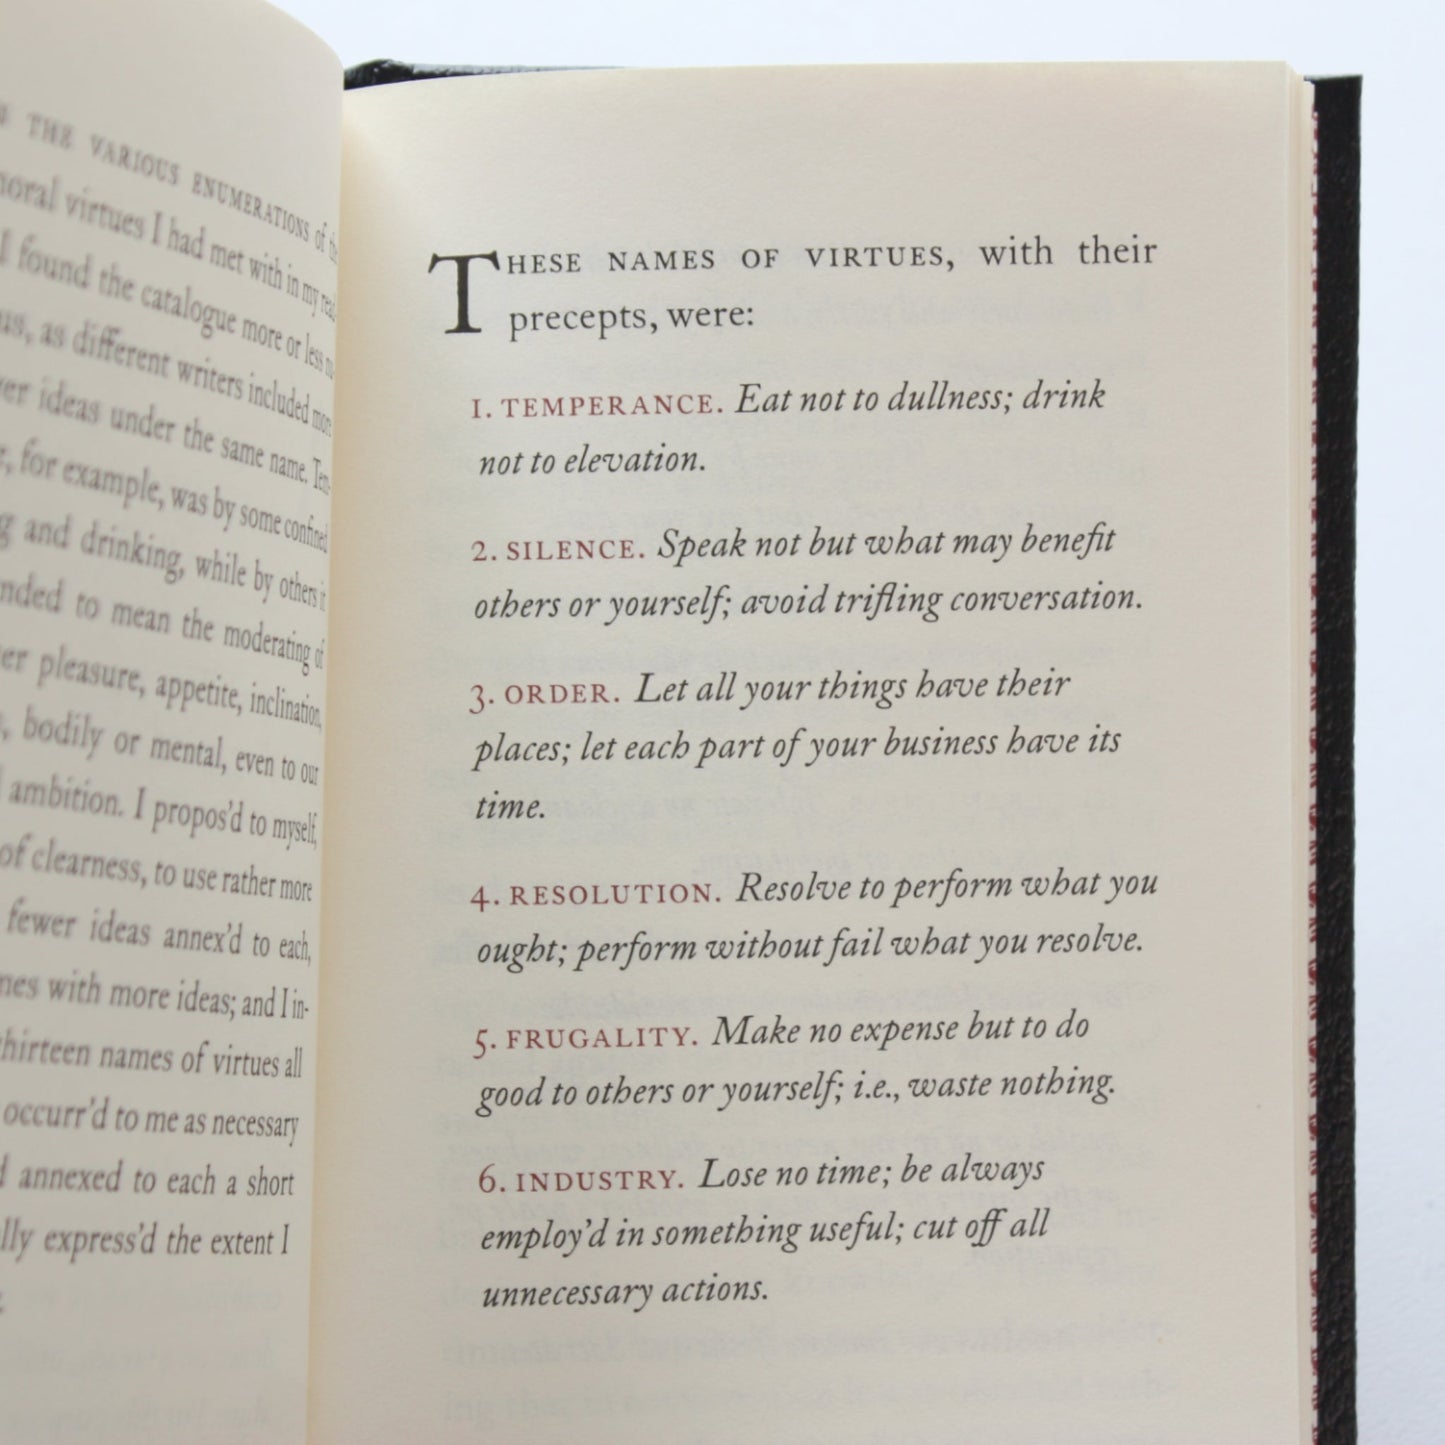 THE VARIOUS ENUMERATIONS of the
moral virtues I had met with in my read-
I found the catalogue more or less
as different writers included more
ideas under the same name. Tem-
for example, was by some confined
and drinking, while by others it
to mean the moderating of
pleasure, appetite, inclination,
bodily or mental, even to our
ambition. I propos'd to myself,
of clearness, to use rather more
fewer ideas annex'd to each,
with more ideas; and I in-
thirteen names of virtues all
occurr'd to me as necessary
annexed to each a short
express'd the extent I
THESE NAMES OF VIRTUES, with their
precepts, were:
1. TEMPERANCE. Eat not to dullness; drink
not to elevation.
2. SILENCE. Speak not but what may benefit
others or yourself; avoid trifling conversation.
3. ORDER. Let all your things have their
places; let each part of your business have its
time.
4. RESOLUTION. Resolve to perform what you
ought; perform without fail what you resolve.
5. FRUGALITY. Make no expense but to do
good to others or yourself; i.e., waste nothing.
6. INDUSTRY. Lose no time; be always
employ'd in something useful; cut off all
unnecessary actions.